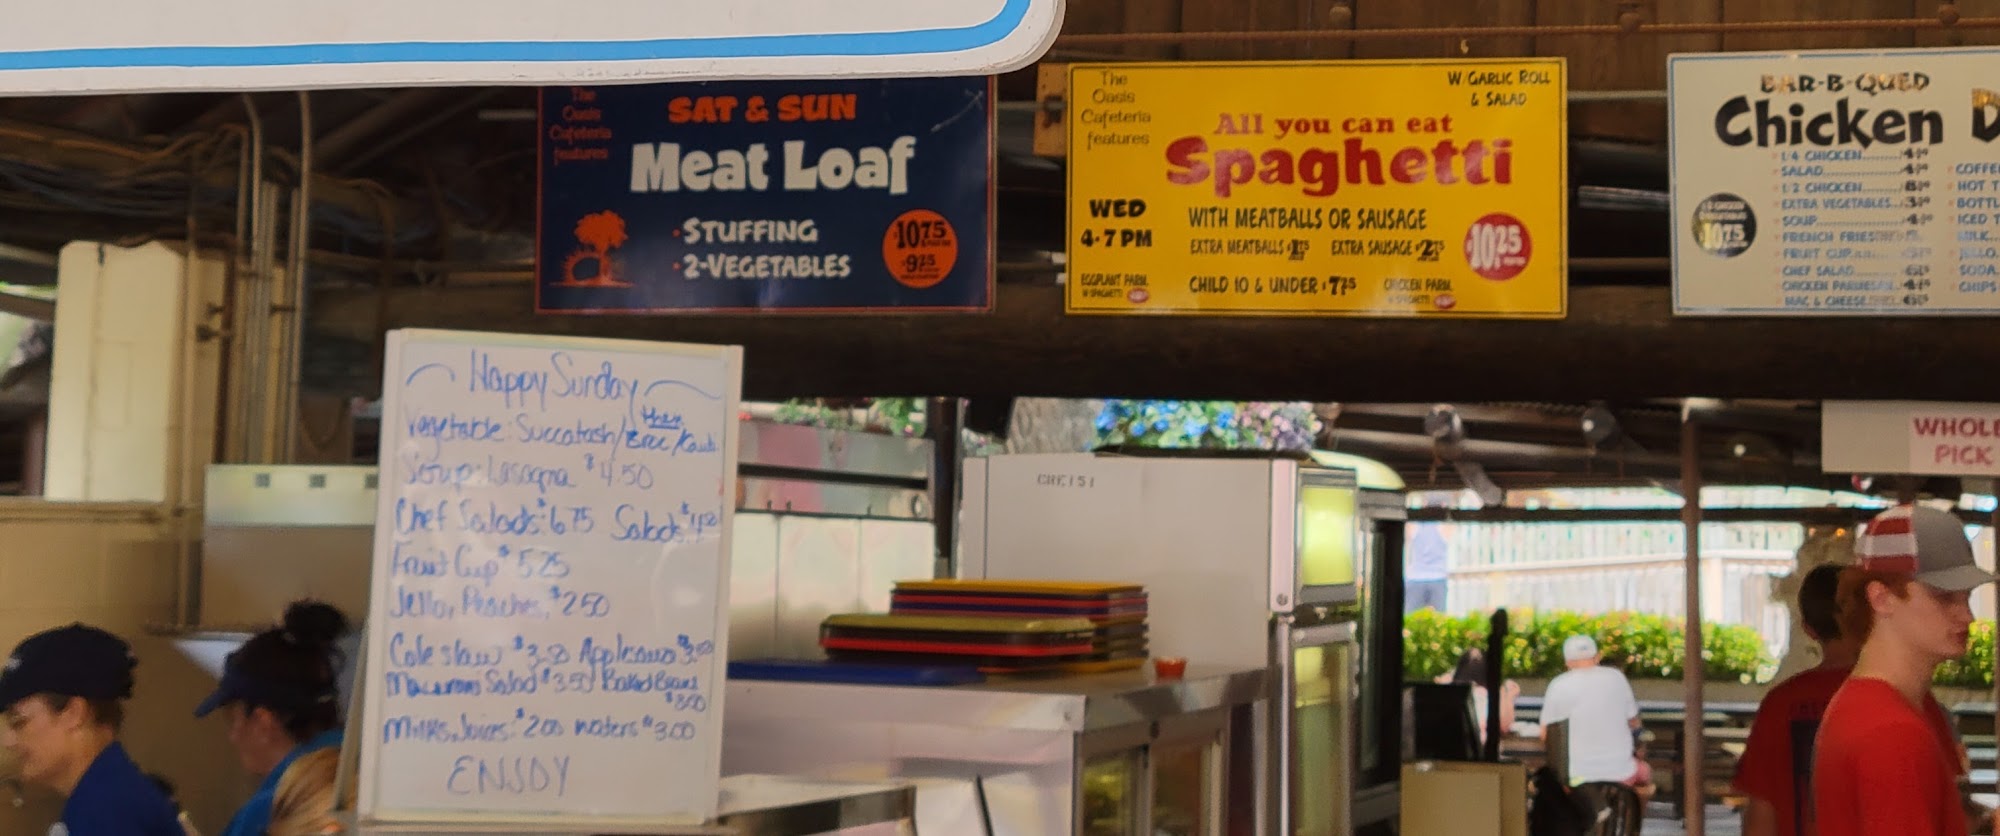 The
Oasis
Cafeteria
features
SAT & SUN
Meat Loaf
· STUFFING
· 2-VEGETABLES
$10.75
$9.25
The
Oasis
Cafeteria
features
W/GARLIC ROLL
& SALAD
All you can eat
Spaghetti
WED
4-7 PM
WITH MEATBALLS OR SAUSAGE
EXTRA MEATBALLS
EXTRA SAUSAGE
$10.25
EGGPLANT PARM.
W SPAGHETTI
CHILD 10 & UNDER $7.75
CHICKEN PARM.
W SPAGHETTI
BAR-B-QUED
Chicken D
1/4 CHICKEN
SALAD
1/2 CHICKEN
EXTRA VEGETABLES
SOUP
FRENCH FRIES
FRUIT CUP
CHEF SALAD
CHICKEN PARMESAN
MAC & CHEESE
10.75
COFFE
HOT T
BOTTL
ICED T
MILK
JELLO
SODA
CHIPS
WHOLE
PICK
CHE151
Happy Sunday
Vegetable: Succotash/
Soup: Lasagna $4.50
Chef Salads: $6.75 Salads $4.50
Fruit Cup $5.25
Jello, Peaches, $2.50
Cole slaw $3.50 Applesauce $3.50
Macaroni Salad $3.50 Baked Beans
$3.50
Milks, Juices: $2.00 Waters $3.00
ENJOY